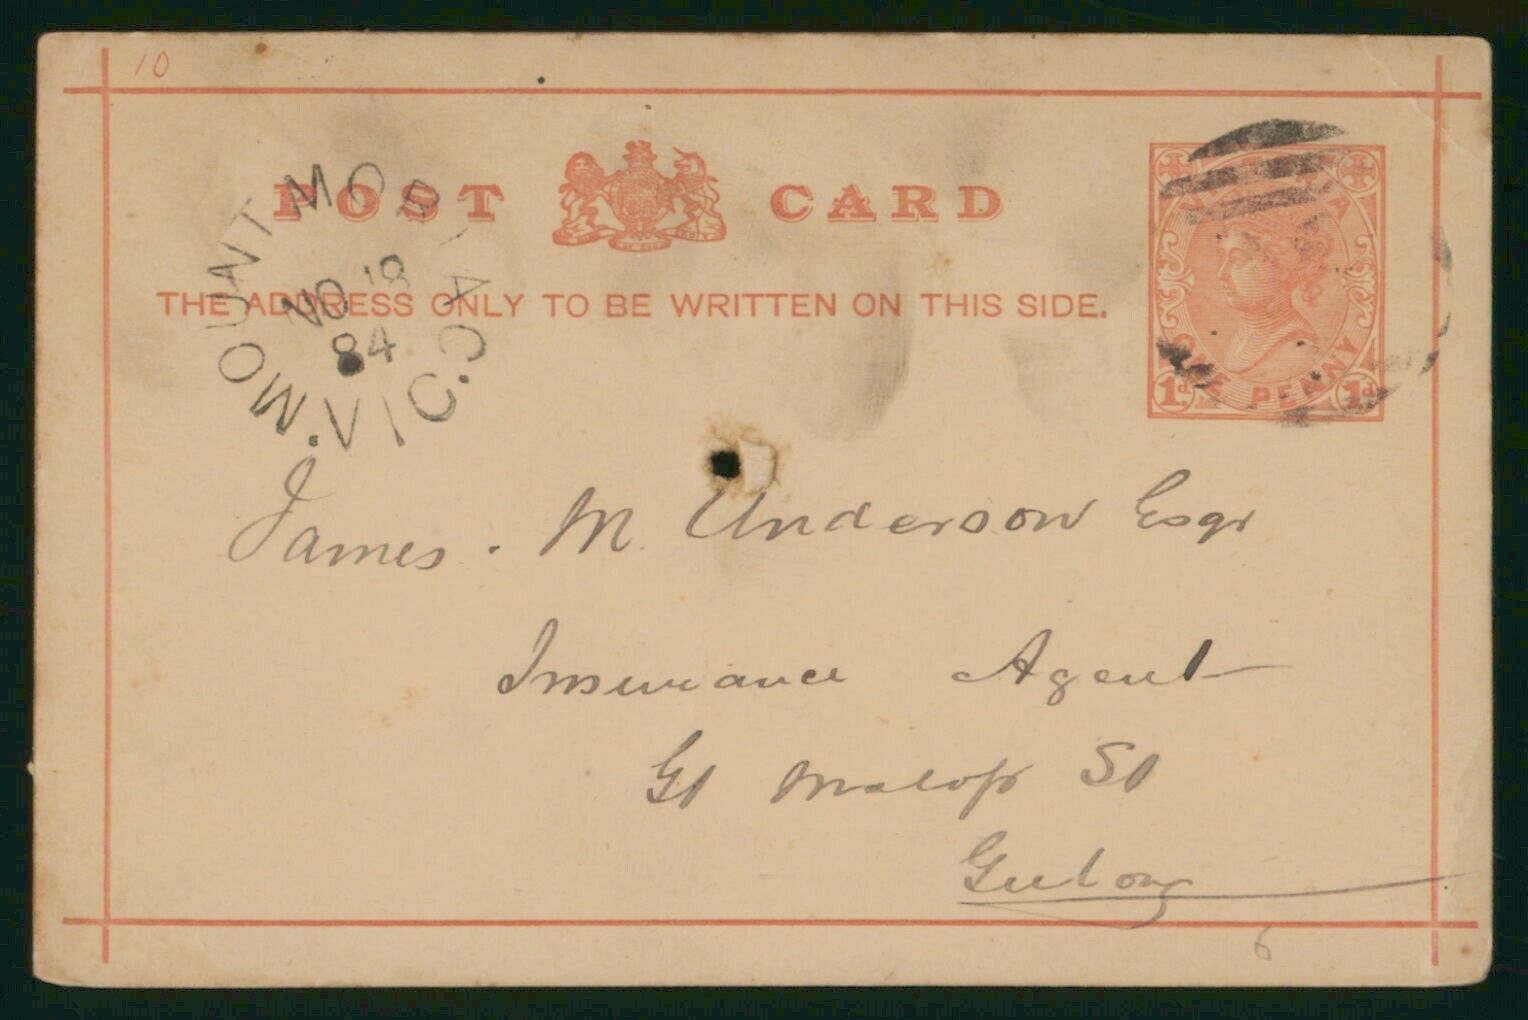 10
POST CARD
THE ADDRESS ONLY TO BE WRITTEN ON THIS SIDE.
MOUNT MORIAC. VIC.
NO 18
84
VICTORIA
ONE PENNY
1d 1d
James. M. Anderson Esqr
Insurance Agent
Gt Malop St
Geelong
6